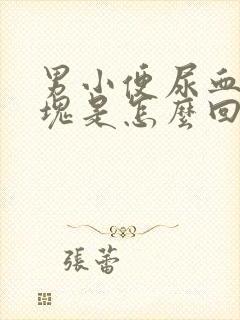 男小便尿血
塊是怎麼回
張蕾